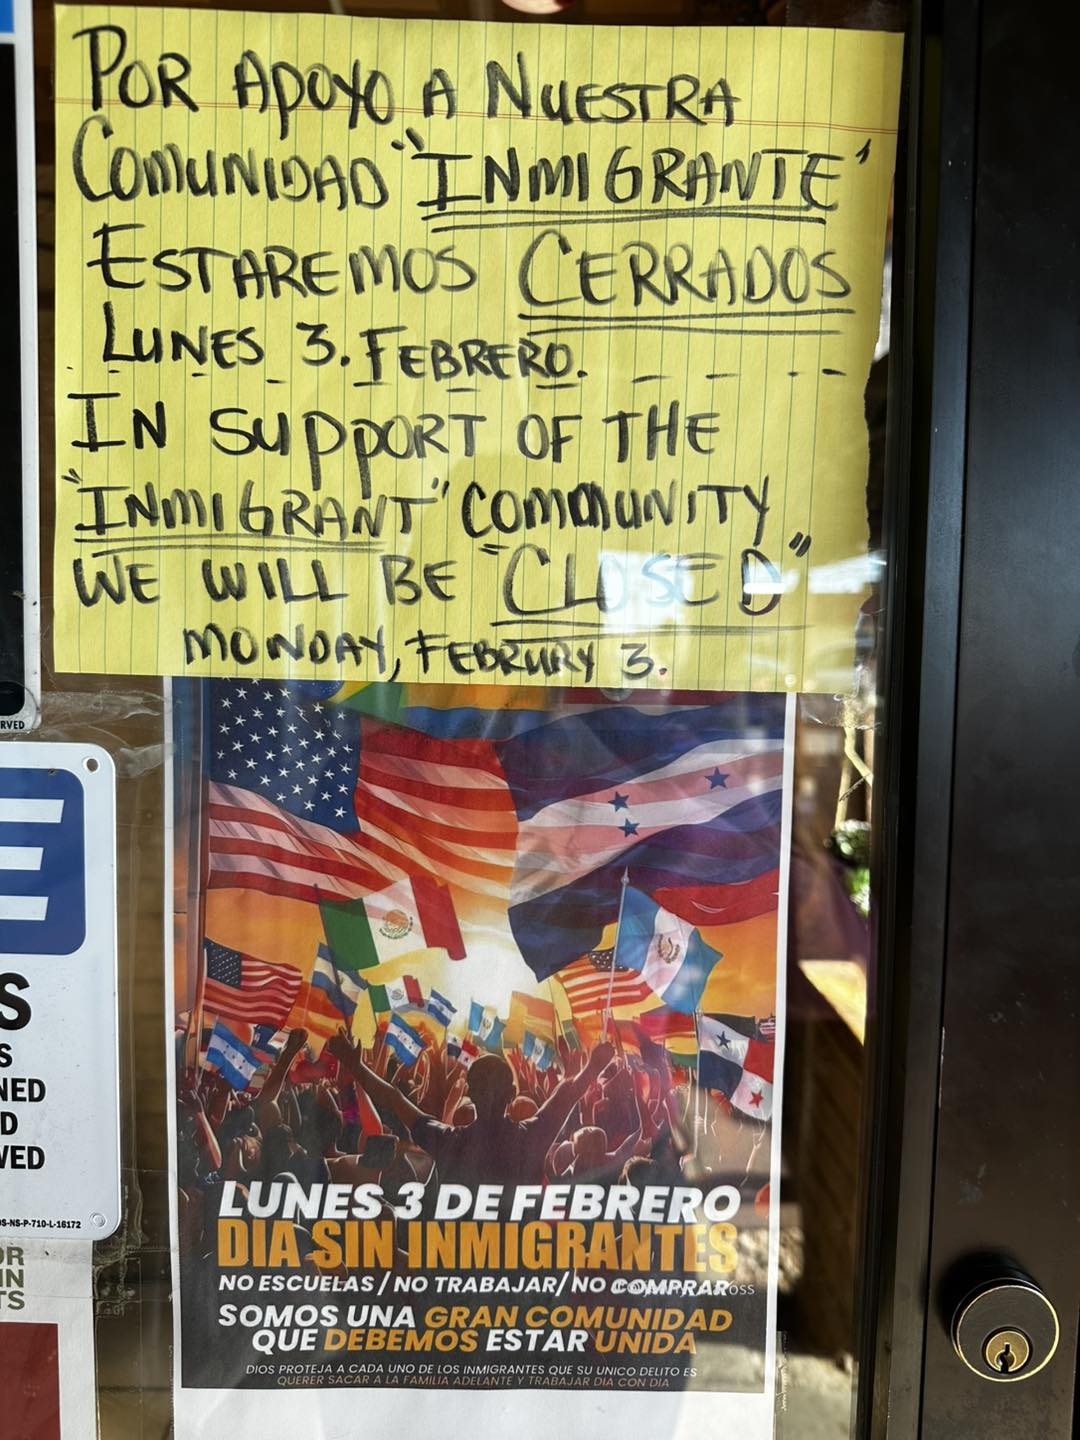 POR APOYO A NUESTRA
COMUNIDAD "INMIGRANTE"
ESTAREMOS CERRADOS
LUNES 3. FEBRERO.
IN SUPPORT OF THE
"INMIGRANT" COMMUNITY
WE WILL BE "CLOSED"
MONDAY, FEBRURY 3.
LUNES 3 DE FEBRERO
DIA SIN INMIGRANTES
NO ESCUELAS / NO TRABAJAR/ NO COMPRAR
SOMOS UNA GRAN COMUNIDAD
QUE DEBEMOS ESTAR UNIDA
DIOS PROTEJA A CADA UNO DE LOS INMIGRANTES QUE SU UNICO DELITO ES
QUERER SACAR A LA FAMILIA ADELANTE Y TRABAJAR DIA CON DIA
RVED
S
S
NED
D
VED
S-NS-P-710-L-16172
OR
IN
TS